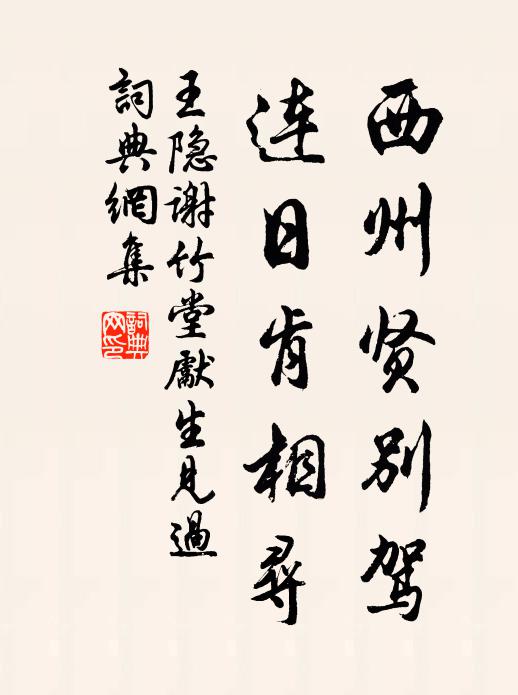 西州贤别驾
连日肯相寻
王隐谢竹堂献生见過
詞典網集
詞典网印